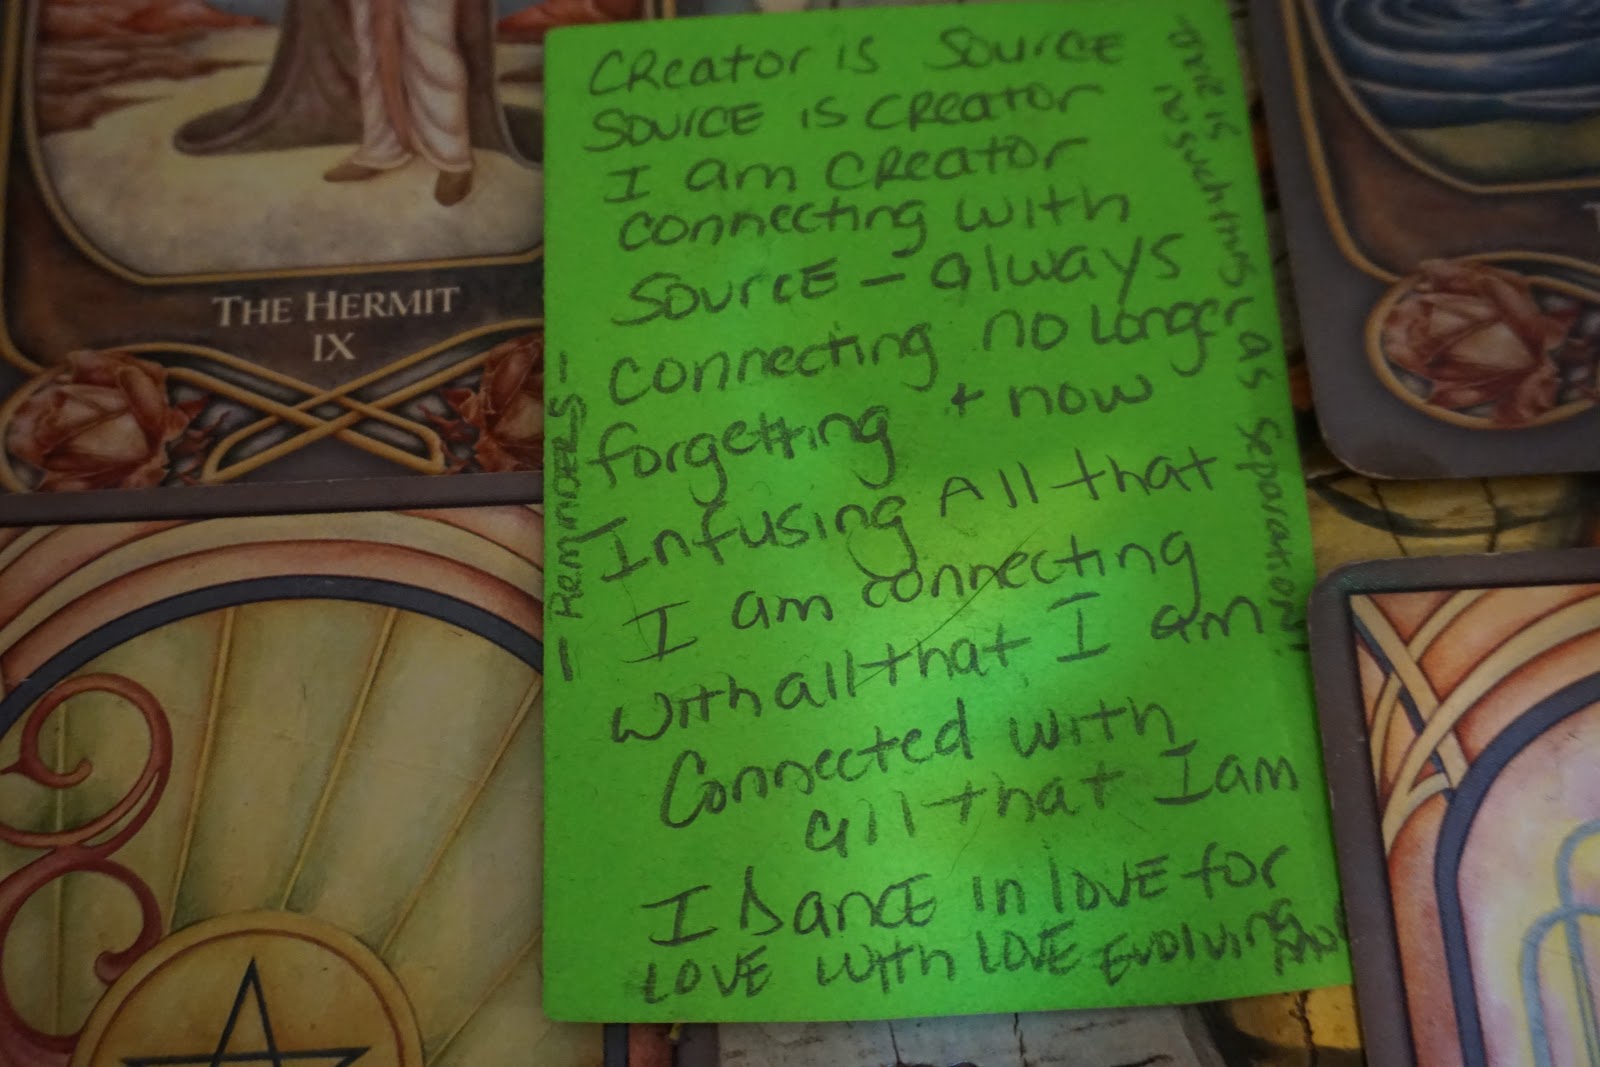 THE HERMIT
IX
- REMINDERS -
CREATOR IS SOURCE
SOURCE IS CREATOR
I am CREATOR
connecting with
SOURCE - always
connecting no longer
forgetting + now
Infusing All that
I am connecting
with all that I am
Connected with
all that I am
I DANCE in LOVE for
LOVE with LOVE EVOLVING
no such thing as separation!